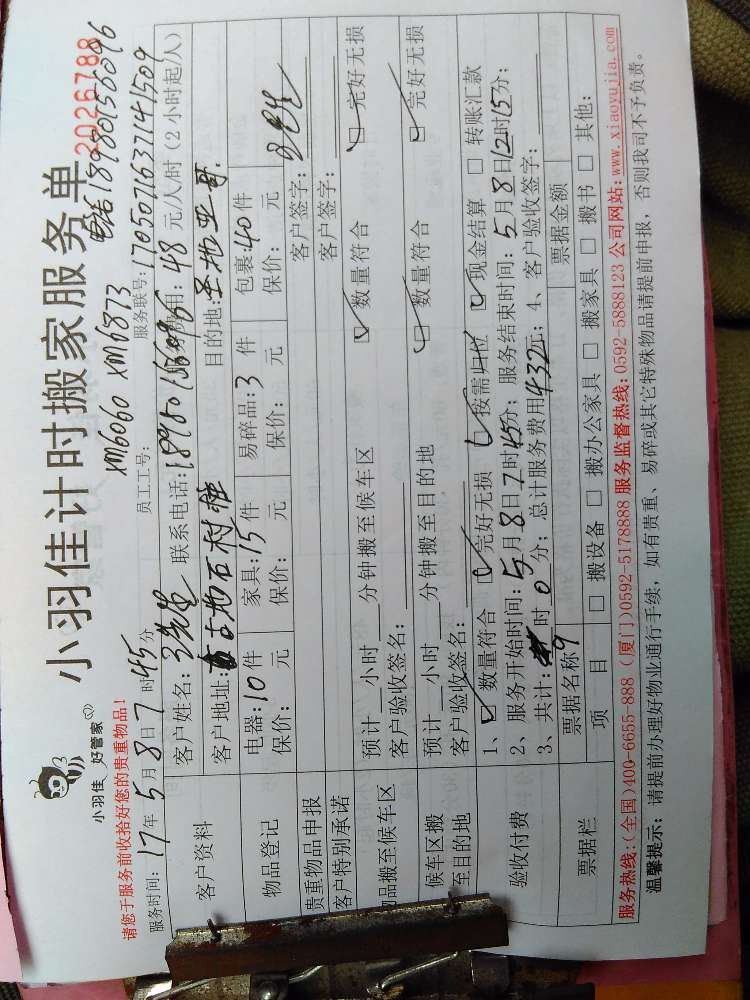 小羽佳 好管家
小羽佳计时搬家服务单 2026788
请您于服务前收拾好您的贵重物品！
XM6060 XM6873 电话18980156096
服务时间：17年5月8日7时45分 员工工号： 服务联号：1705071637141509
客户资料 客户姓名： 联系电话：18980156096 费用：48元/人/时（2小时起/人）
客户地址： 石村 目的地：
物品登记 电器：10件 家具：15件 易碎品：3件 包裹：40件
保价： 元 保价： 元 保价： 元 保价： 元
贵重物品申报 客户签字：
客户特别承诺 客户签字：
物品搬至候车区 预计 小时 分钟搬至候车区 数量符合 完好无损
客户验收签名：
候车区搬至目的地 预计 小时 分钟搬至目的地 数量符合 完好无损
客户验收签名：
验收付费 1、 数量符合 完好无损 按需归位 现金结算 转账汇款
2、服务开始时间：5月8日7时45分；服务结束时间：5月8日12时15分；
3、共计： 时0分；总计服务费用432元；4、客户验收签字：
票据栏 票据名称 票据金额
项目 搬设备 搬办公家具 搬家具 搬书 其他：
服务热线：(全国)400-6655-888 (厦门)0592-5178888 服务监督热线：0592-5888123 公司网站：www.xiaoyujia.com
温馨提示：请提前办理好物业通行手续，如有贵重、易碎或其它特殊物品请提前申报，否则我司不予负责。